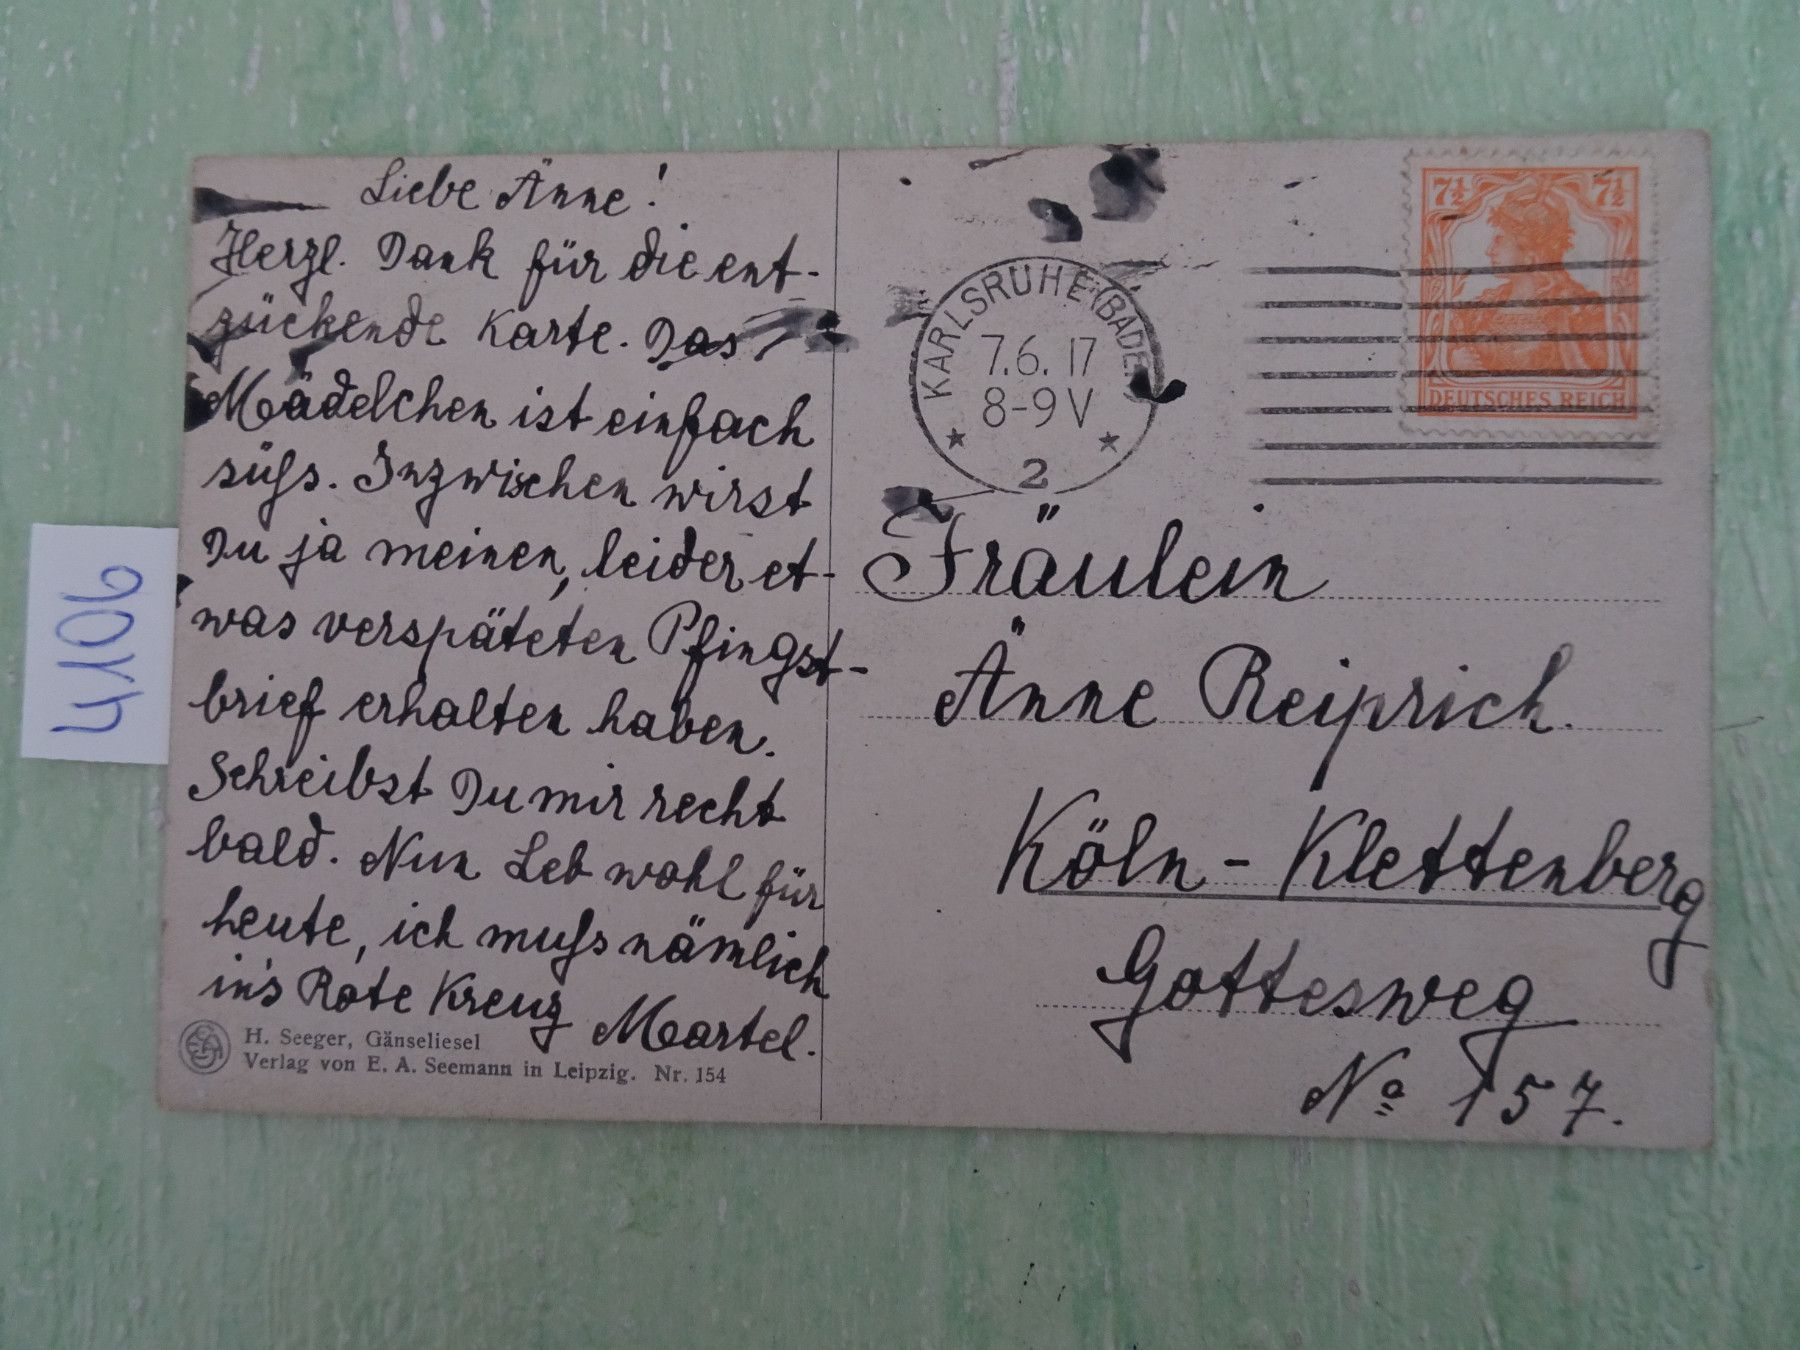 Liebe Änne!
Herzl. Dank für die ent-
zückende Karte. Das
Mädelchen ist einfach
süß. Inzwischen wirst
Du ja meinen, leider et-
was verspäteten Pfingst-
brief erhalten haben.
Schreibst Du mir recht
bald. Nun Leb wohl für
heute, ich muß nämlich
in's Rote Kreuz Martel.
H. Seeger, Gänseliesel
Verlag von E. A. Seemann in Leipzig. Nr. 154
KARLSRUHE (BADEN)
7.6.17
8-9 V
2
7½ 7½
DEUTSCHES REICH
Fräulein
Änne Reiprich.
Köln - Klettenberg
Gottesweg
No 157.
4106